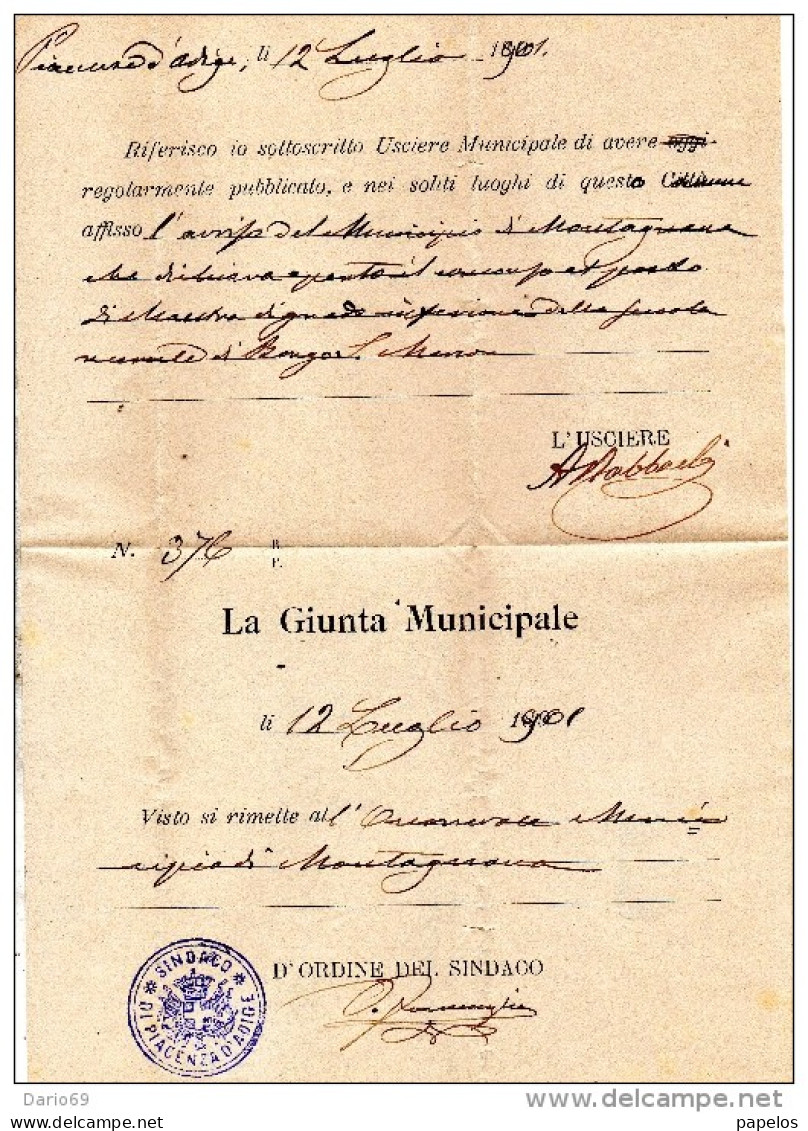 Piacenza d'Adige, li 12 Luglio 1901.
Riferisco io sottoscritto Usciere Municipale di avere oggi
regolarmente pubblicato, e nei soliti luoghi di questo Comune
affisso l'avviso del Municipio di Montagnana
che dichiara aperto il concorso al posto
di Maestra di grado inferiore della scuola
rurale di Borgo S. Marco
L'USCIERE
N. 376 R.
P.
La Giunta Municipale
li 12 Luglio 1901
Visto si rimette all'Onorevole Muni=
cipio di Montagnana
D'ORDINE DEL SINDACO
SINDACO
DI PIACENZA D'ADIGE
Dario69
delcampe.net
papelos